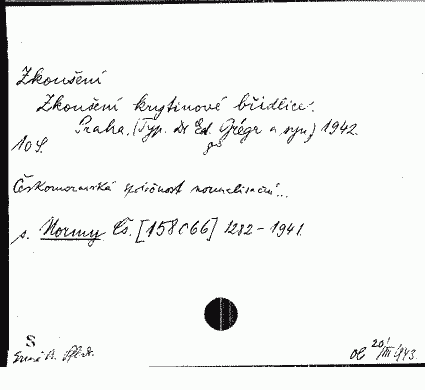 Zkoušení
Zkoušení krytinové břidlice.
Praha. (Typ. Dr Ed. Grégr a syn) 1942.
10 S.
Českomoravská společnost normalisační...
s. Normy Čs. [158c66] 1282-1941.
S
20/III 1943.